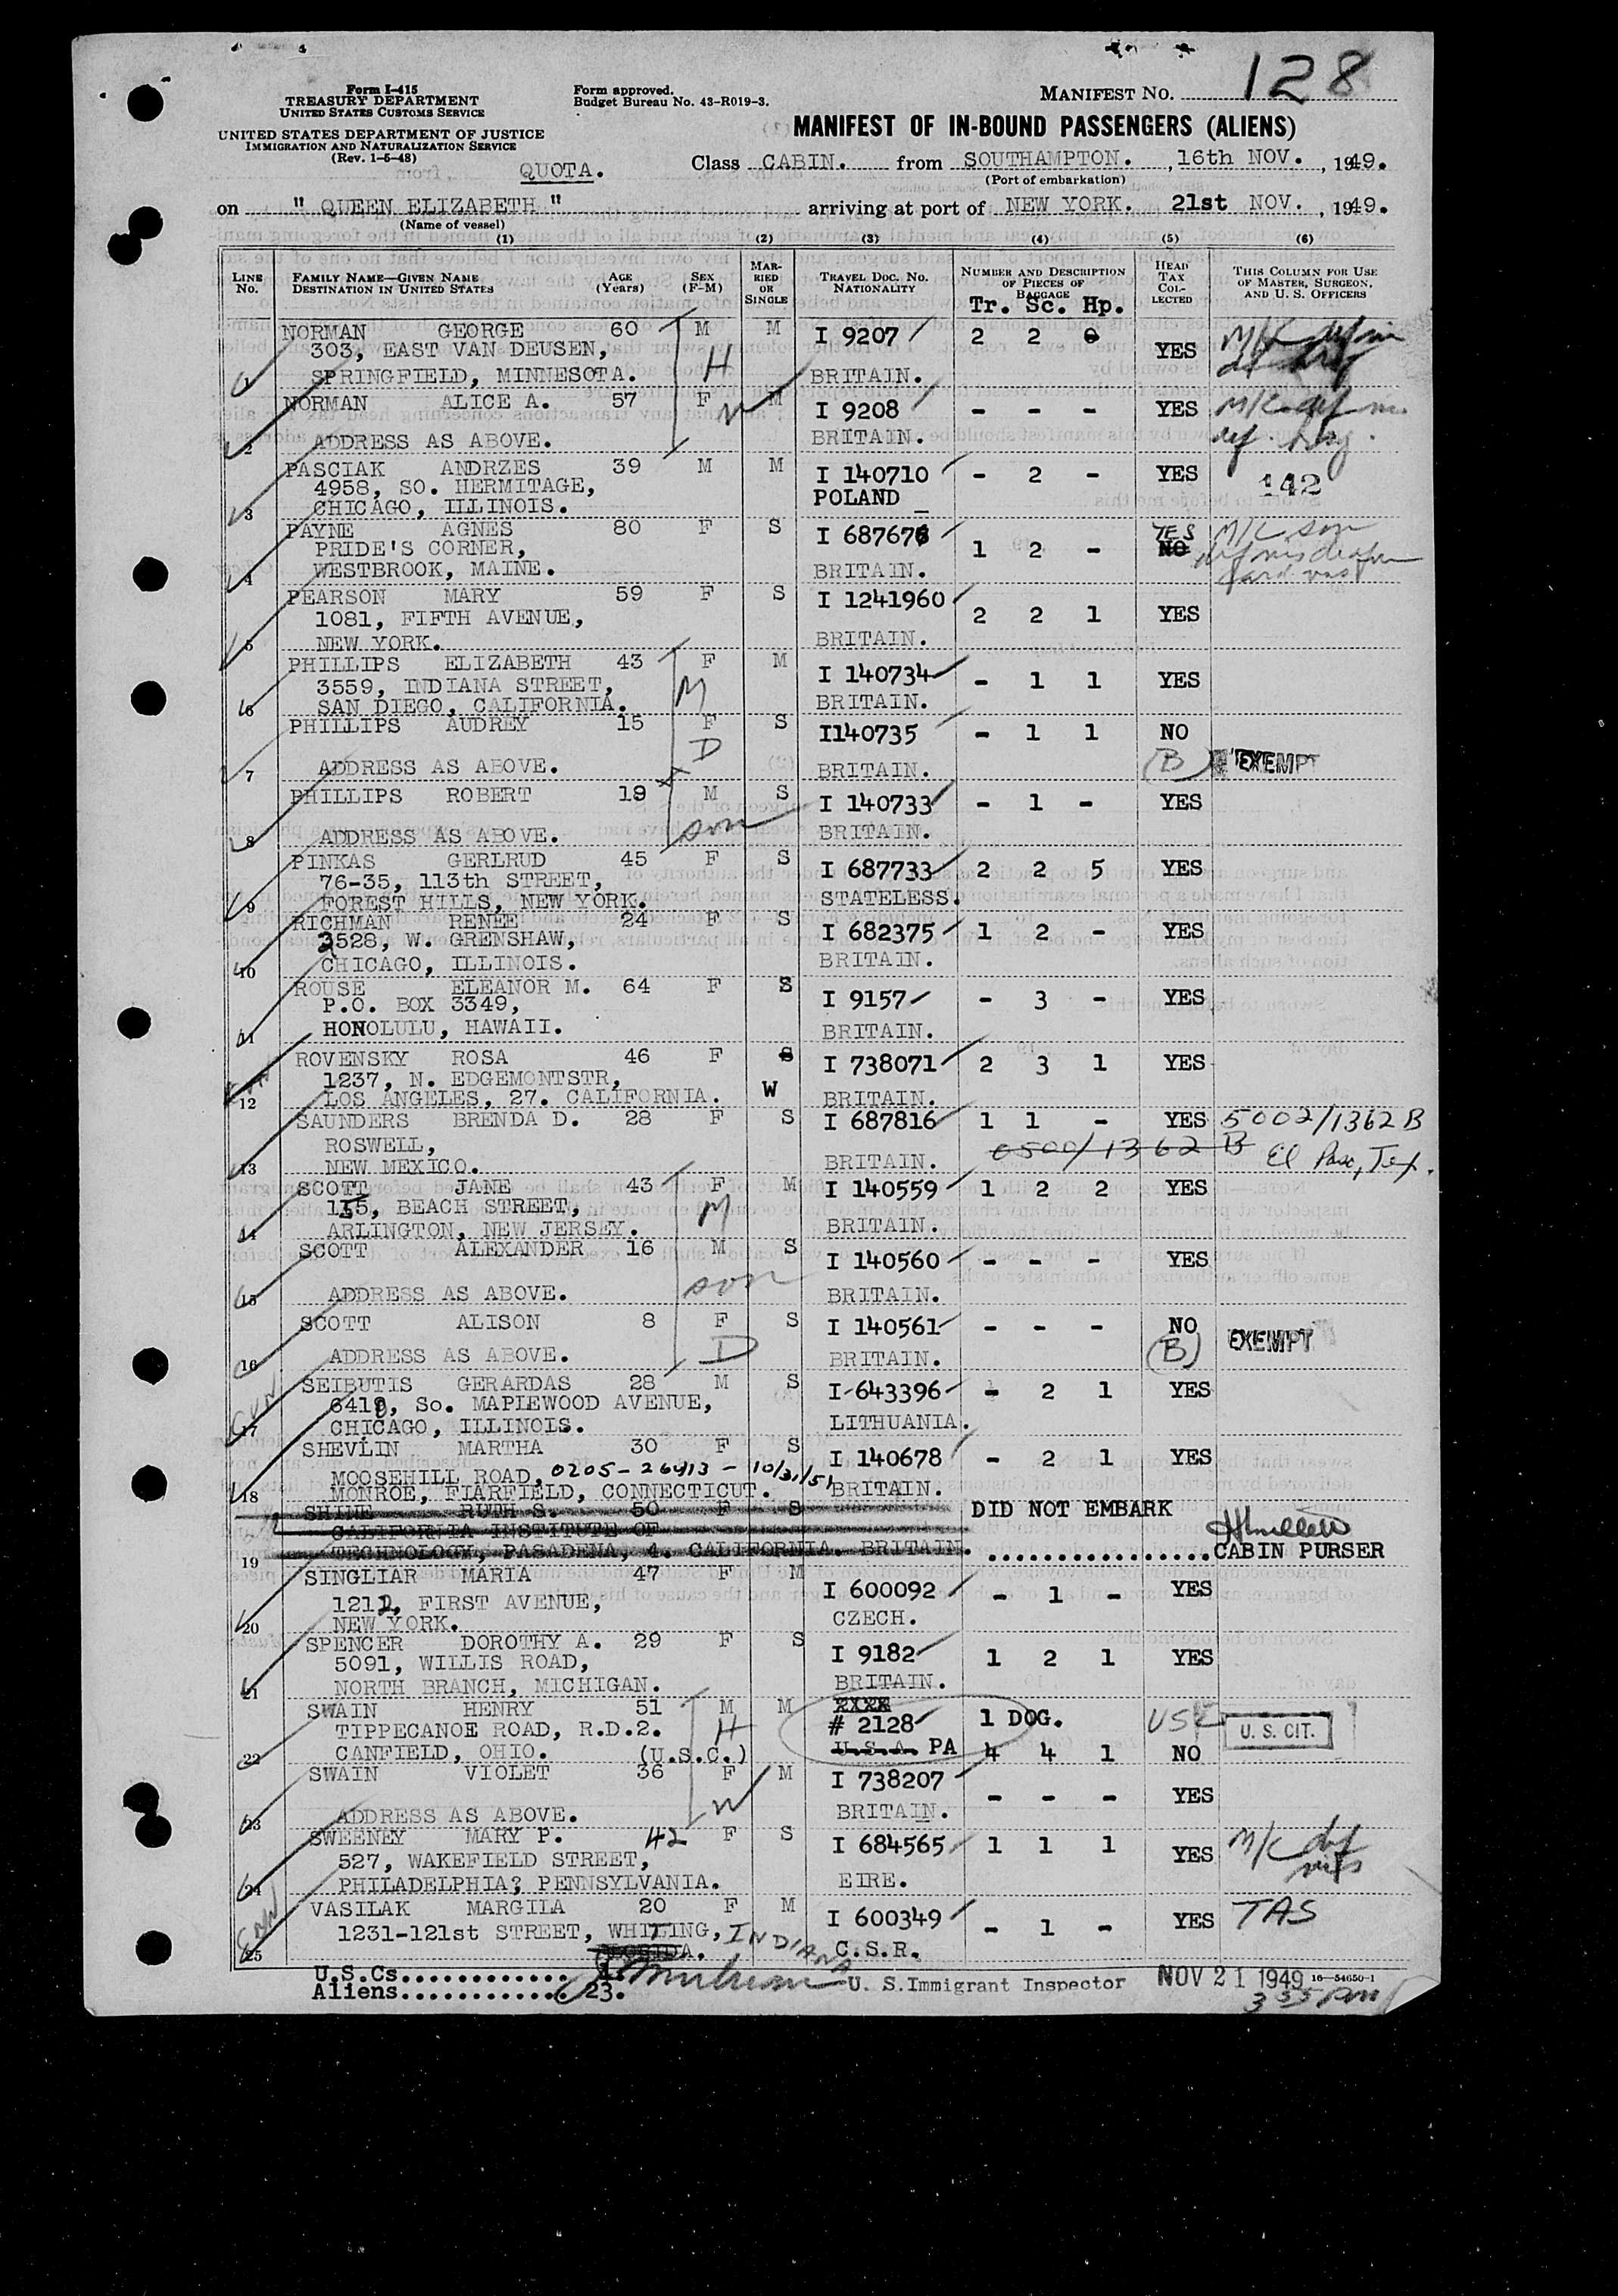 128
Form I-415
TREASURY DEPARTMENT
UNITED STATES CUSTOMS SERVICE
Form approved.
Budget Bureau No. 43-R019-3.
MANIFEST NO.
UNITED STATES DEPARTMENT OF JUSTICE
IMMIGRATION AND NATURALIZATION SERVICE
(Rev. 1-5-48)
MANIFEST OF IN-BOUND PASSENGERS (ALIENS)
QUOTA.
Class CABIN. from SOUTHAMPTON. , 16th NOV. , 1949.
(Port of embarkation)
on " QUEEN ELIZABETH " arriving at port of NEW YORK. 21st NOV. , 1949.
(Name of vessel)
(1) (2) (3) (4) (5) (6)
LINE No. FAMILY NAME—GIVEN NAME DESTINATION IN UNITED STATES AGE (Years) SEX (F-M) MARRIED OR SINGLE TRAVEL DOC. No. NATIONALITY NUMBER AND DESCRIPTION OF PIECES OF BAGGAGE HEAD TAX COLLECTED THIS COLUMN FOR USE OF MASTER, SURGEON, AND U. S. OFFICERS
Tr. Sc. Hp.
NORMAN GEORGE 60 M M I 9207 2 2 0 YES
303, EAST VAN DEUSEN,
1 SPRINGFIELD, MINNESOTA. H BRITAIN.
NORMAN ALICE A. 57 F M I 9208 - - - YES M/C def
2 ADDRESS AS ABOVE. W BRITAIN. def.
PASCIAK ANDRZES 39 M M I 140710 - 2 - YES 142
4958, SO. HERMITAGE, POLAND
3 CHICAGO, ILLINOIS.
PAYNE AGNES 80 F S I 687676 1 2 - YES NO M/C son
PRIDE'S CORNER,
4 WESTBROOK, MAINE. BRITAIN.
PEARSON MARY 59 F S I 1241960 2 2 1 YES
1081, FIFTH AVENUE,
5 NEW YORK. BRITAIN.
PHILLIPS ELIZABETH 43 F M I 140734 - 1 1 YES
3559, INDIANA STREET, M
6 SAN DIEGO, CALIFORNIA. BRITAIN.
PHILLIPS AUDREY 15 F S I140735 - 1 1 NO
D
7 ADDRESS AS ABOVE. BRITAIN. (B) EXEMPT
PHILLIPS ROBERT 19 M S I 140733 - 1 - YES
8 ADDRESS AS ABOVE. son BRITAIN.
PINKAS GERLRUD 45 F S I 687733 2 2 5 YES
76-35, 113th STREET,
9 FOREST HILLS, NEW YORK. STATELESS.
RICHMAN RENEE 24 F S I 682375 1 2 - YES
3528, W. GRENSHAW,
10 CHICAGO, ILLINOIS. BRITAIN.
ROUSE ELEANOR M. 64 F S I 9157 - 3 - YES
P.O. BOX 3349,
11 HONOLULU, HAWAII. BRITAIN.
ROVENSKY ROSA 46 F S I 738071 2 3 1 YES
1237, N. EDGEMONTSTR, W
12 LOS ANGELES, 27. CALIFORNIA. BRITAIN.
SAUNDERS BRENDA D. 28 F S I 687816 1 1 - YES 5002/1362 B
ROSWELL, 0500/1362 B El Paso, Tex.
13 NEW MEXICO. BRITAIN.
SCOTT JANE 43 F M I 140559 1 2 2 YES
155, BEACH STREET, M
14 ARLINGTON, NEW JERSEY. BRITAIN.
SCOTT ALEXANDER 16 M S I 140560 - - - YES
15 ADDRESS AS ABOVE. son BRITAIN.
SCOTT ALISON 8 F S I 140561 - - - NO EXEMPT
16 ADDRESS AS ABOVE. D BRITAIN. (B)
SEIBUTIS GERARDAS 28 M S I-643396 - 2 1 YES
6419, So. MAPLEWOOD AVENUE,
17 CHICAGO, ILLINOIS. LITHUANIA.
SHEVLIN MARTHA 30 F S I 140678 - 2 1 YES
MOOSEHILL ROAD, 0205-26413 - 10/31/51
18 MONROE, FIARFIELD, CONNECTICUT. BRITAIN.
SHIME RUTH S. 50 F S DID NOT EMBARK
CALIFORNIA INSTITUTE OF
19 TECHNOLOGY, PASADENA, 4. CALIFORNIA. BRITAIN. ................CABIN PURSER
SINGLIAR MARIA 47 F M I 600092 - 1 - YES
1212, FIRST AVENUE,
20 NEW YORK. CZECH.
SPENCER DOROTHY A. 29 F S I 9182 1 2 1 YES
5091, WILLIS ROAD,
21 NORTH BRANCH, MICHIGAN. BRITAIN.
SWAIN HENRY 51 M M # 2128 1 DOG. USC
TIPPECANOE ROAD, R.D.2. H U. S. CIT.
22 CANFIELD, OHIO. (U.S.C.) U.S.A. PA 4 4 1 NO
SWAIN VIOLET 36 F M I 738207 - - - YES
23 ADDRESS AS ABOVE. W BRITAIN.
SWEENEY MARY P. 42 F S I 684565 1 1 1 YES M/C def
527, WAKEFIELD STREET,
24 PHILADELPHIA? PENNSYLVANIA. EIRE.
VASILAK MARGIIA 20 F M I 600349 - 1 - YES TAS
1231-121st STREET, WHITING, INDIANA
25 C.S.R.
U.S.Cs............. 1.
Aliens............ 23. U. S. Immigrant Inspector NOV 21 1949 16—54650-1
3 55 PM